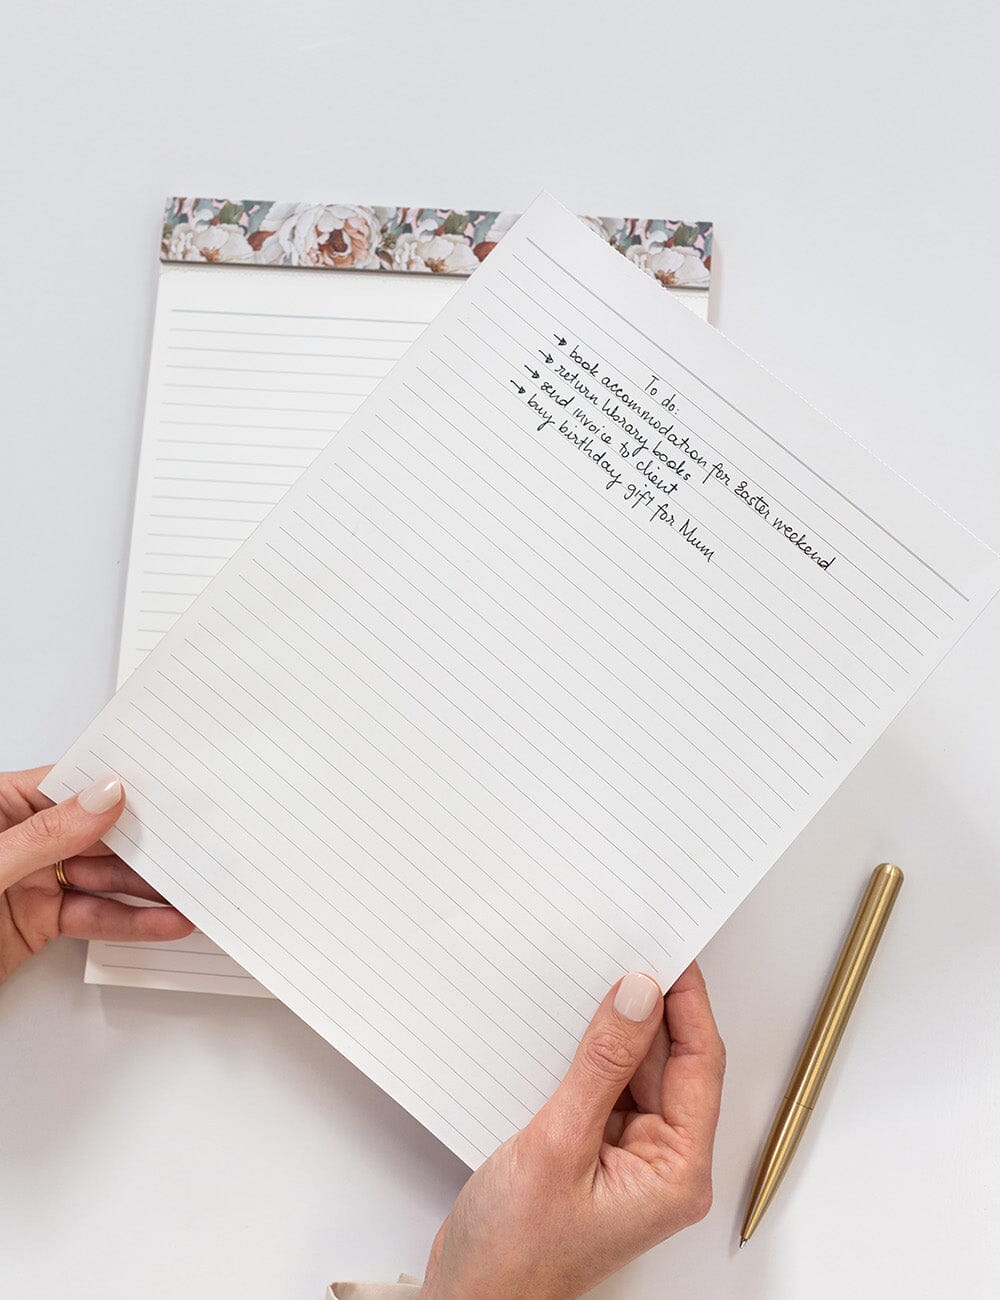 To do:
→ book accommodation for Easter weekend
→ return library books
→ send invoice to client
→ buy birthday gift for Mum